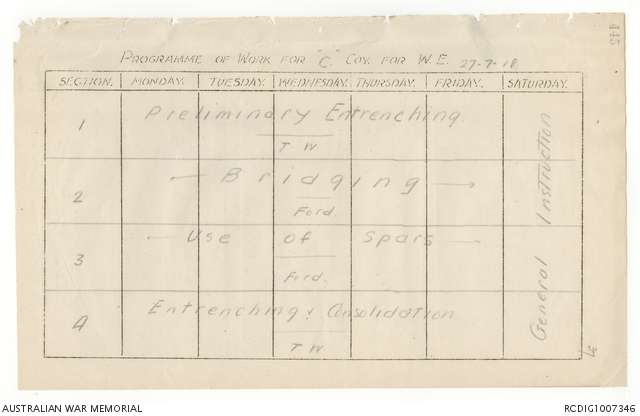 445
PROGRAMME OF WORK FOR "C" COY. FOR W.E. 27-7-18
SECTION. MONDAY. TUESDAY. WEDNESDAY. THURSDAY. FRIDAY. SATURDAY.
1 Preliminary Entrenching
T W
2 — Bridging —
Ford.
3 — Use of Spars —
Ford.
4 Entrenching & Consolidation
T W
General Instruction
AUSTRALIAN WAR MEMORIAL
RCDIG1007346